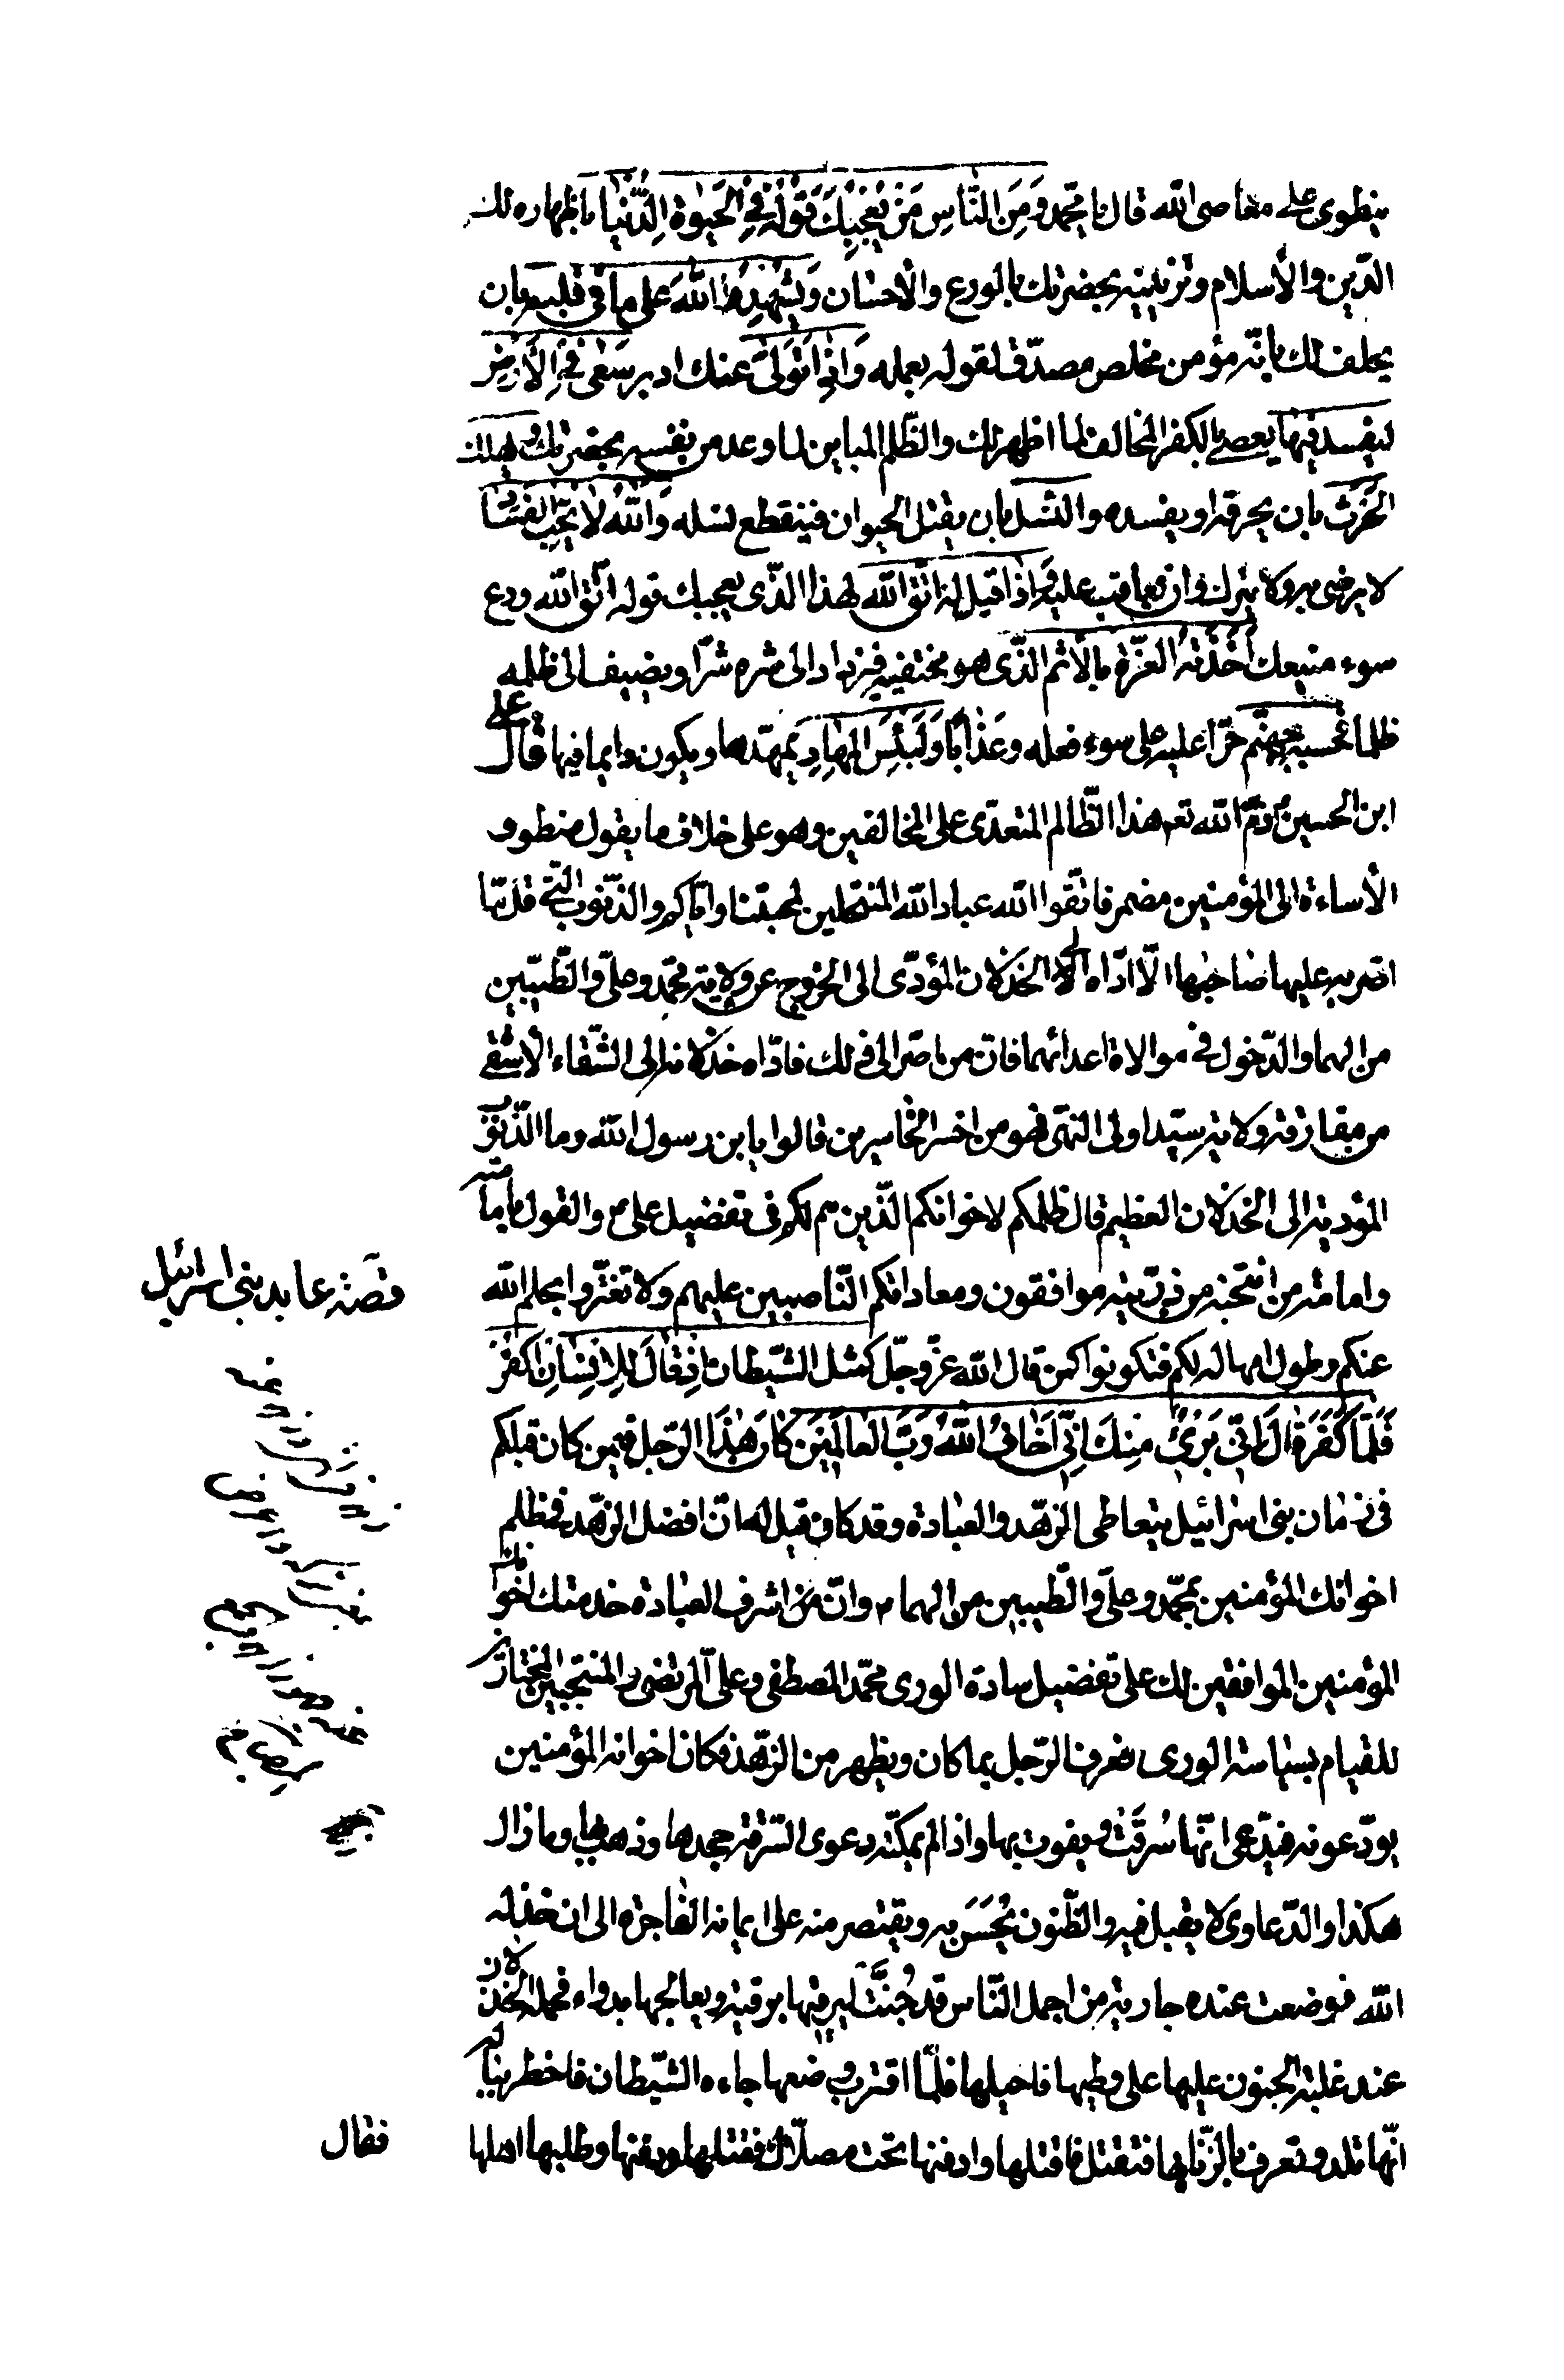 ينطوى على معاصى الله قال يا محمد وَمِنَ النَّاسِ مَنْ يُعْجِبُكَ قَوْلُهُ فِى الْحَيٰوةِ الدُّنْيَا باظهاره لك
الدّين والأسلام وتزيينه بحضرتك بالورع والأحسان وَيُشْهِدُ اللهَ عَلى ما فى قَلْبِه بان
يحلف لك بانّه مؤمن مخلص مصدّق لقوله بعمله وَاِذا تَوَلّىٰ عنك ادبر سَعىٰ فِى الْاَرْضِ
ليفسد فيها يعصى بالكفر المخالف لما اظهر لك والظّلم المباين لما وعد من نفسه بحضرتك ويهلك
الحَرْث بان يحرقه او يفسده والنّسل بان يقتل الحيوان فينقطع نسله وَاللهُ لا يُحِبُّ الفَسٰاد
لا يرضى به ولا يترك ان يعاقب عليه وَاِذا قيل له اتّق الله لهذا الذّى يعجبك قوله اتّق الله ودع
سوء صنيعك اَخَذَتْهُ العِزَّة بالأثم الذّى هو محتقبه فيزداد الى شره شرّا ويضيف الى ظلمه
ظلما فحسبه جهنّم جزاء عليه على سوء فعله وعَذٰابًا وَلَبِئْسَ الْمِهاد يمهّدها ويكون دايما فيها قال على
ابن الحسين ع ذمّ الله تعه هذا الظّالم المتعدّى على المخالفين وهو على خلاف ما يقول منطو و
الأساءة الى المؤمنين مضمر فاتّقوا الله عباد الله المنتحلين لمحبّتنا وايّاكم والذّنوب الّتى قلّ ما
اصرّ عليها صاحبها الّا ادّاه الى الخذلان المؤدّى الى الخروج عن ولاية محمّد وعلىّ والطّيّبين
من الهما والدّخول فى موالاة اعدائهما فانّ من اصرّ الى ذلك فادّاه خذلانه الى الشّقاء الأشقى
من مفارقة ولاية سيّد اولى النّهى فهو من اخسر الخاسرين قالوا يا بن رسول الله وما الذّنوب
المؤدية الى الخذلان العظيم قال ظلمكم لاخوانكم الّذين هم لكم فى تفضيل على ع والقول بامامته
وامامة من انتجبه من ذرّيّته موافقون ومعاداتكم النّاصبين عليهم ولا تغتّروا بحلم الله
عنكم وطول امهاله لكم فتكونوا كمن قال الله عزّ وجلّ كمثل الشّيطان اِذ قٰالَ لِلْاِنْسٰانِ اكْفُرْ
فَلَمّا كَفَرَ قٰالَ اِنّى بَرئٌ مِنْكَ اِنّى اَخافُ اللهَ رَبَّ العالَمينَ كان هذا الرّجل فيمن كان قبلكم
فى زمان بنى اسرائيل يتعاطى الزهد والعبادة وقد كان قيل له انّ افضل الزهد فى ظلم
اخوانك المؤمنين بمحمّد وعلىّ والطّيبين من الهما ع وانّ من اشرف العبادة خدمتك اخوانك
المؤمنين الموافقين لك على تفضيل سادة الورى محمّد المصطفى وعلىّ المرتضى والمنتجبين المختارين
للقيام بسياسة الورى فعرف الرّجل بما كان ويظهر من الزهد فكان اخوانه المؤمنين
يودّعونه فيدّعى انّها سُرِقَتْ ويفوت بها واذا لم يمكنّه دعوى السّرقة جحدها وذهب بها وما زال
هكذا والدّعاوى لا يقبل فيه والظّنون تُحْسَن به ويقتصر منه على ايمانه الفاجرة الى ان خذله
الله فوضعت عنده جارية من اجمل النّاس قد جُنَّتْ ليرقيها برقية ويعالجها بدواء فحمله الخذلان
عند غلبة الجنون عليها على وطيها فاحبلها فلمّا اقترب وضعها جاءه الشّيطان فاخطر بباله
انّها تلد وتعرف بالزّنا بها فتقتل فاقتلها وادفنها تحت مصلّاك فقتلها ودفنها وطلبها اهلها
فقال
قصّة عابد بنى اسرائيل